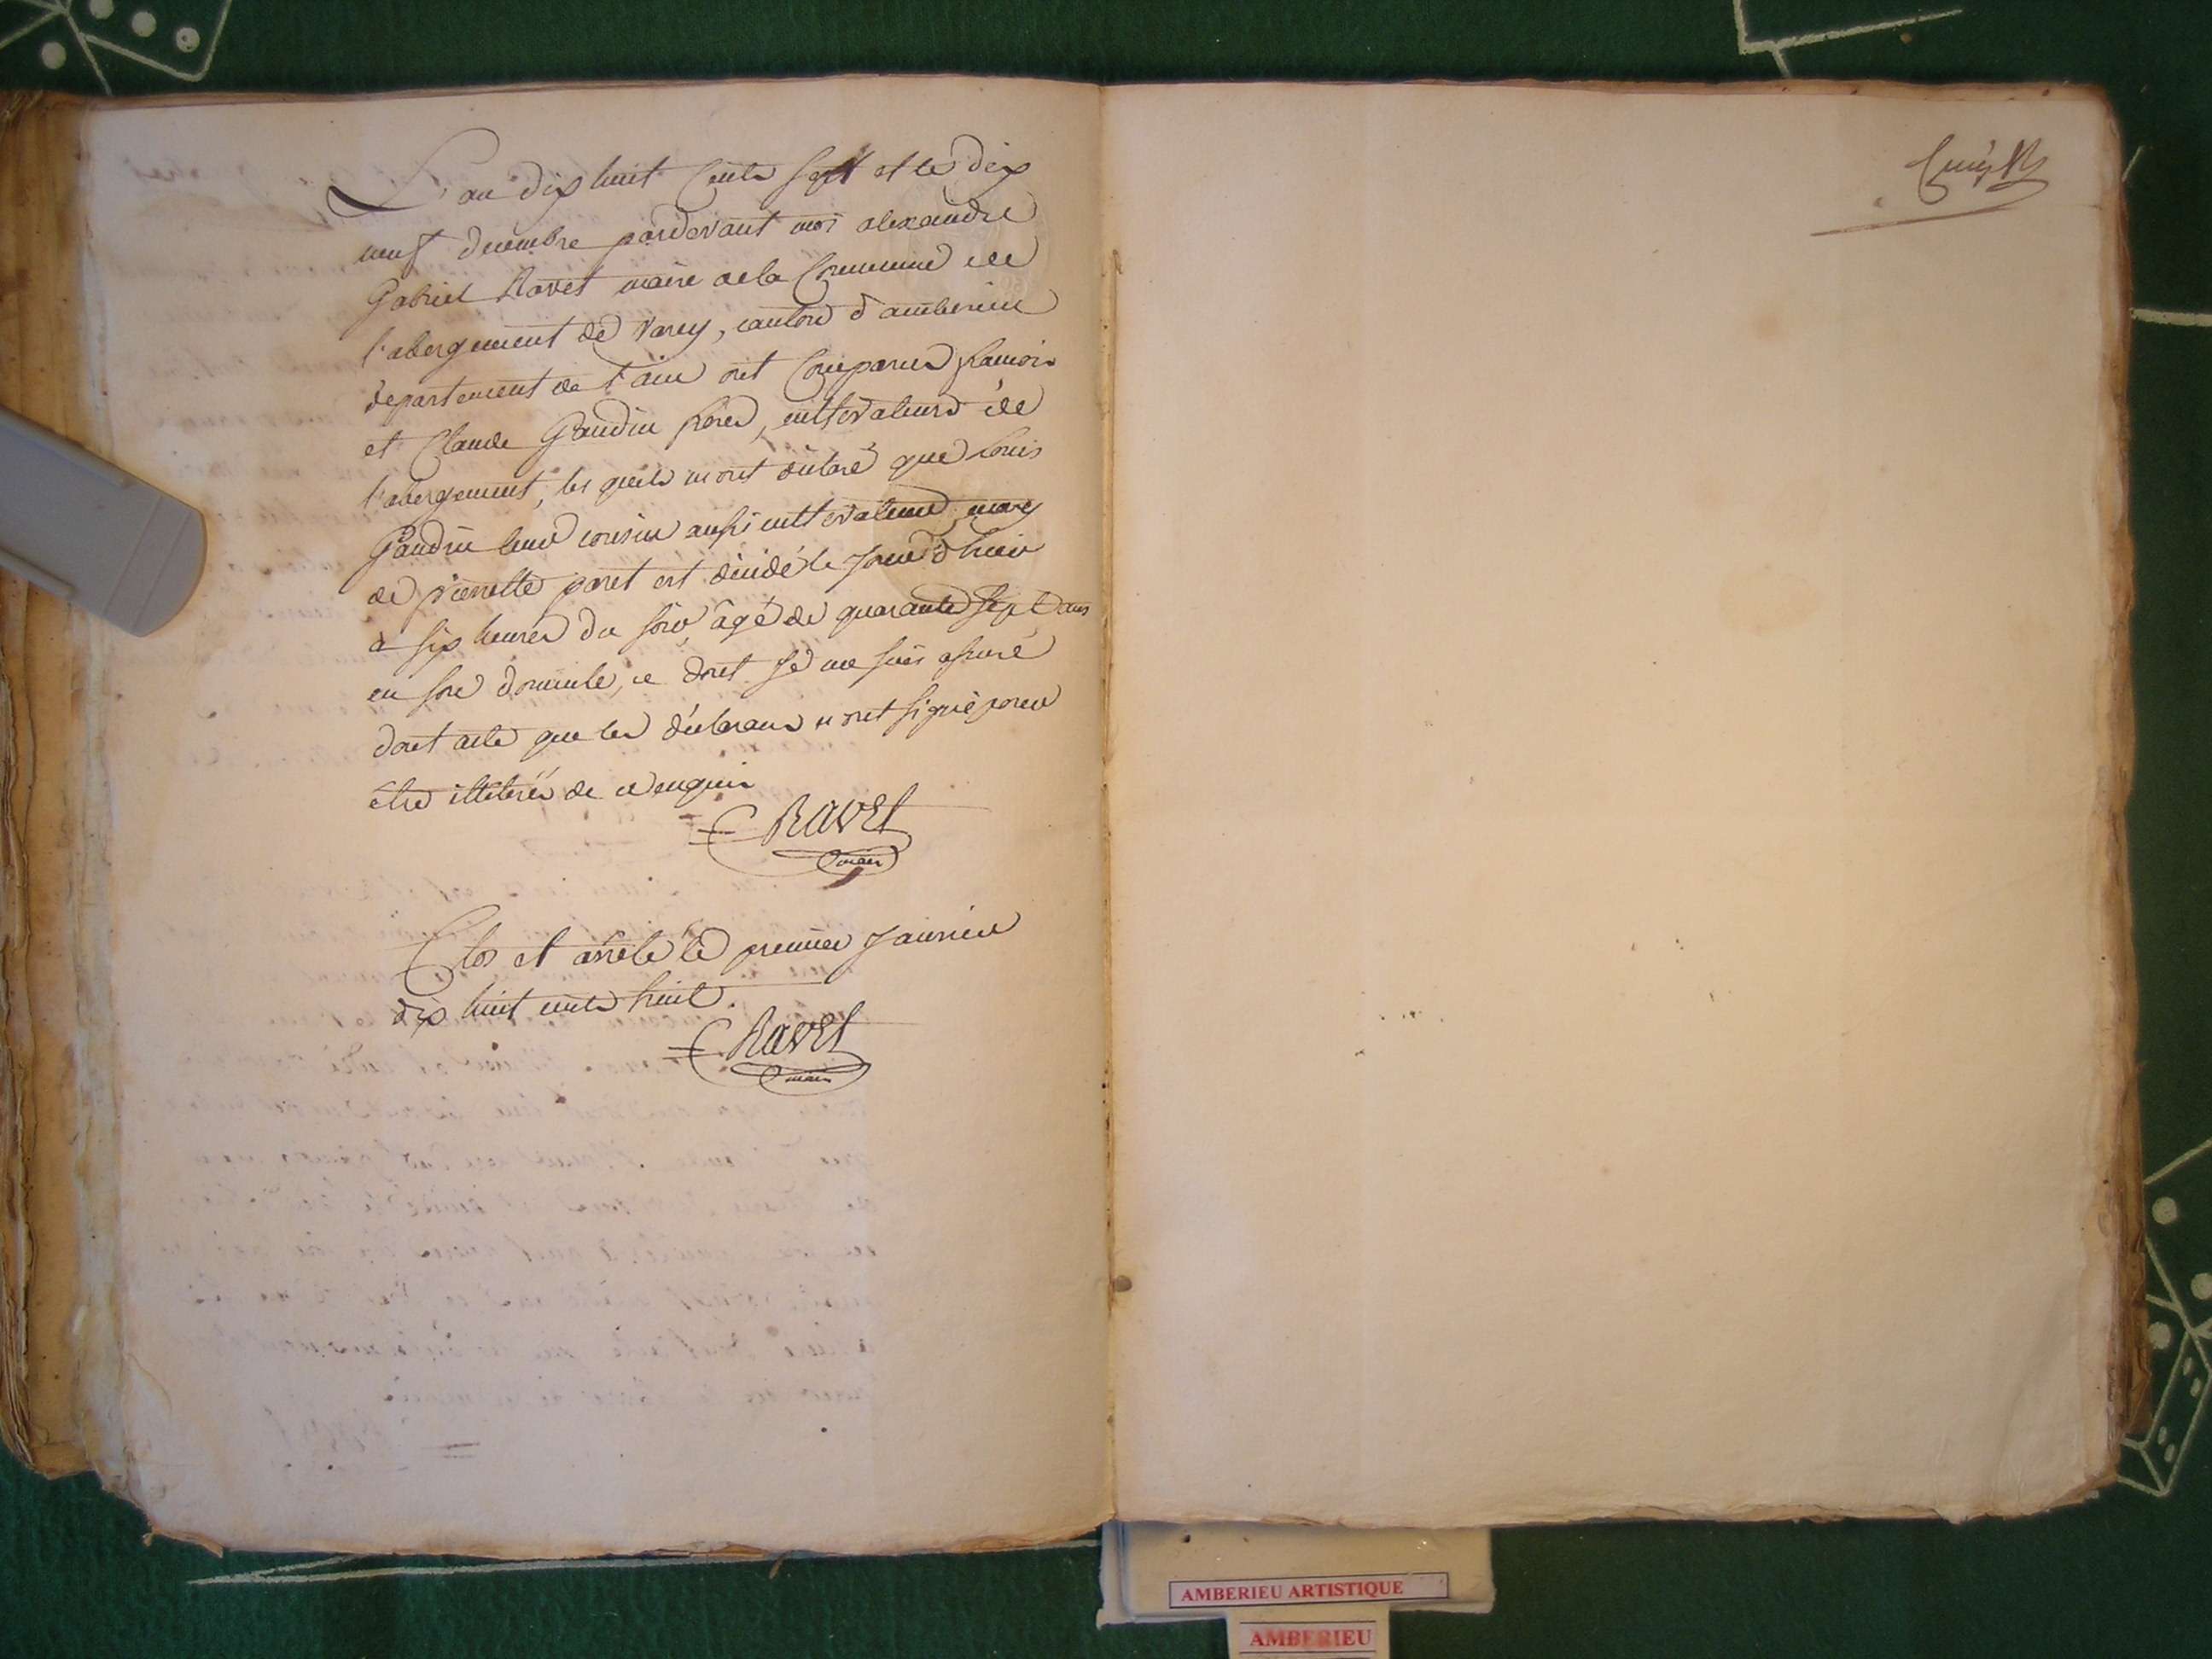 L'an dix huit cents sept et le dix
neuf decembre pardevant moi alexandre
Gabriel Ravet maire de la Commune de
l'abergement de varey, canton d'amberieu
departement de l'ain ont Comparus francois
et Claude Gaudin freres, cultivateurs de
l'abergement, les quels m'ont déclaré que Louis
Gaudin leur cousin aussi cultivateur, mary
de pierrette paret est décédé le jourd'huir
a six heures du soir, âgé de quarante sept ans
en son domicile, ce dont je me suis assuré
dont acte que les déclarans n'ont signé pour
être illiterés de ce enquis
RAVET
maire
Clos et arrêté le premier Janvier
dix huit cents huit
RAVET
maire
AMBERIEU ARTISTIQUE
AMBERIEU